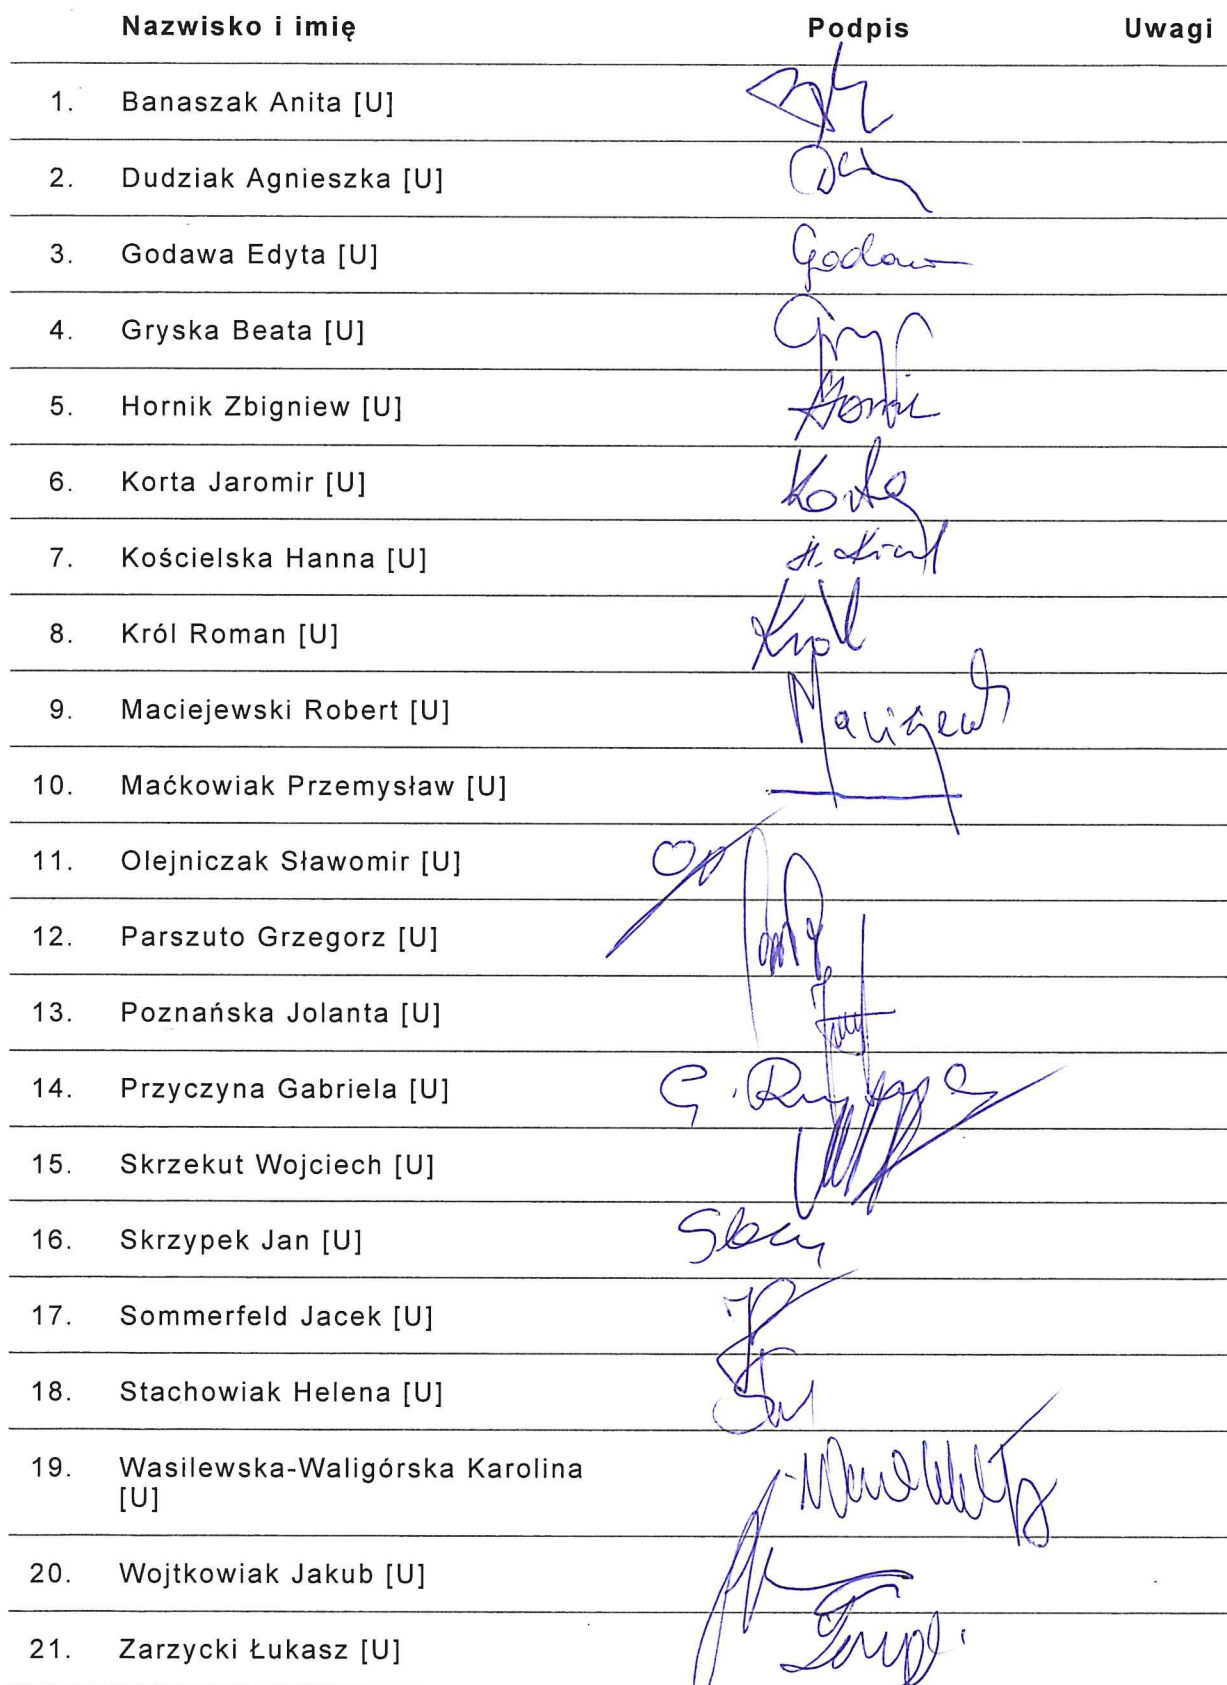 Nazwisko i imię Podpis Uwagi
1. Banaszak Anita [U]
2. Dudziak Agnieszka [U]
3. Godawa Edyta [U] Godawa
4. Gryska Beata [U]
5. Hornik Zbigniew [U]
6. Korta Jaromir [U] Korta
7. Kościelska Hanna [U]
8. Król Roman [U] Król
9. Maciejewski Robert [U]
10. Maćkowiak Przemysław [U]
11. Olejniczak Sławomir [U]
12. Parszuto Grzegorz [U]
13. Poznańska Jolanta [U]
14. Przyczyna Gabriela [U]
15. Skrzekut Wojciech [U]
16. Skrzypek Jan [U]
17. Sommerfeld Jacek [U]
18. Stachowiak Helena [U]
19. Wasilewska-Waligórska Karolina
[U]
20. Wojtkowiak Jakub [U]
21. Zarzycki Łukasz [U]